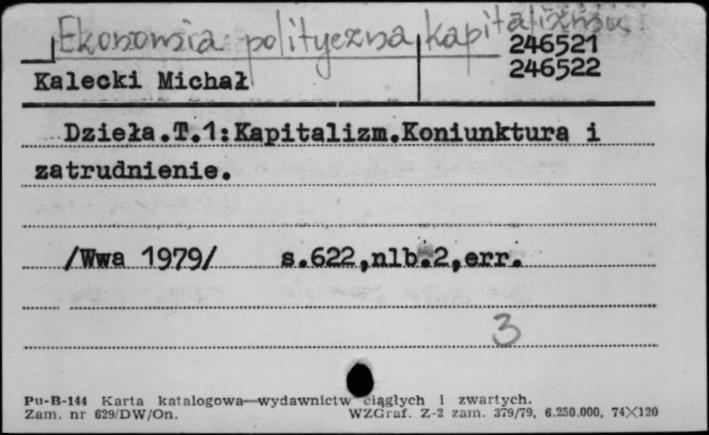 Ekonomia polityczna kapitalizmu
246521
246522
Kalecki Michał
Dzieła.T.1:Kapitalizm.Koniunktura i
zatrudnienie.
/Wwa 1979/ s.622,nlb.2,err.
3
Pu-B-144 Karta katalogowa—wydawnictw ciągłych i zwartych.
Zam. nr 629/DW/On. WZGraf. Z-2 zam. 379/79, 6.250.000, 74×120